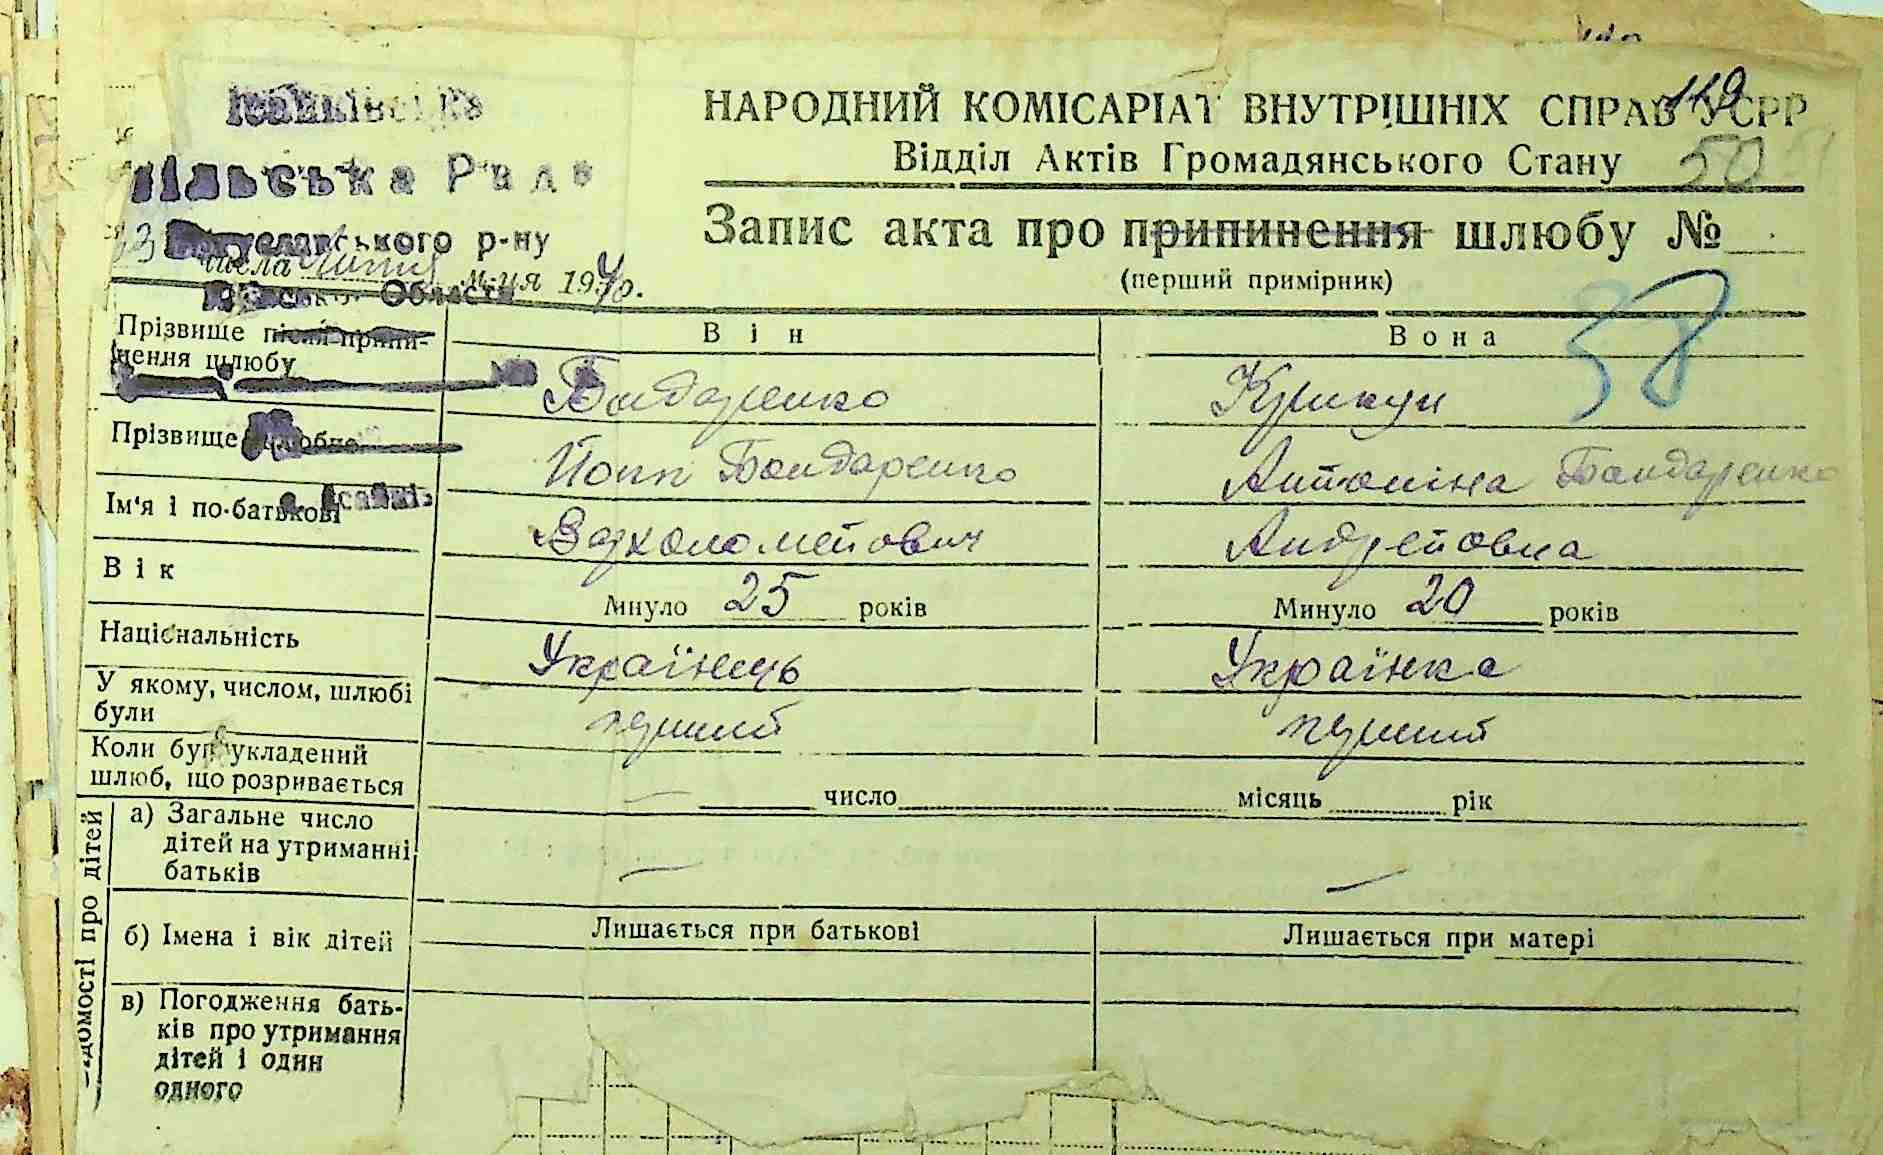 Ісайківська
сільська Рада
Богуславського р-ну
23 числа Липня м-ця 1940.
Київської Области
НАРОДНИЙ КОМІСАРІАТ ВНУТРІШНІХ СПРАВ УСРР
119
Відділ Актів Громадянського Стану
50
Запис акта про припинення шлюбу №
(перший примірник)
38
Прізвище після припи-
нення шлюбу
Він
Вона
Бондаренко
Крикун
Прізвище дошлюбне
Бондаренко
Антоніна Бондаренко
Ім'я і по-батькові
с. Ісайки
Вархоломейович
Андреївна
Вік
Минуло 25 років
Минуло 20 років
Національність
Українець
Українка
У якому, числом, шлюбі
були
перший
перший
Коли був укладений
шлюб, що розривається
— число місяць рік
Відомості про дітей
а) Загальне число
дітей на утриманні
батьків
—
—
б) Імена і вік дітей
Лишається при батькові
Лишається при матері
в) Погодження бать-
ків про утримання
дітей і один
одного